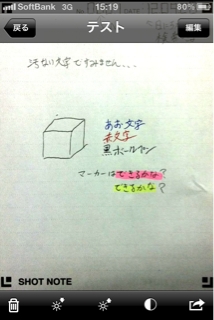 SoftBank 3G 15:19 80%
戻る テスト 編集
汚ない文字ですみません...
あお文字
赤文字
黒ボールペン
マーカーはできるかな?
できるかな?
SHOT NOTE